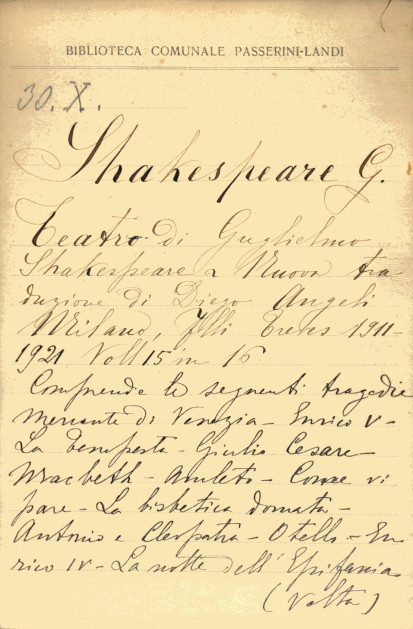 BIBLIOTECA COMUNALE PASSERINI-LANDI
30.X.
Shakespeare G.
Teatro di Guglielmo
Shakespeare Nuova tra
duzione di Diego Angeli
Milano, Flli Treves 1911-
1921 Voll 15 in 16
Comprende le seguenti tragedie
Mercante di Venezia - Enrico V -
La Tempesta - Giulio Cesare -
Macbeth - Amleto - Come vi
pare - La bisbetica domata -
Antonio e Cleopatra - Otello - En
rico IV - La notte dell'Epifania
(volta)